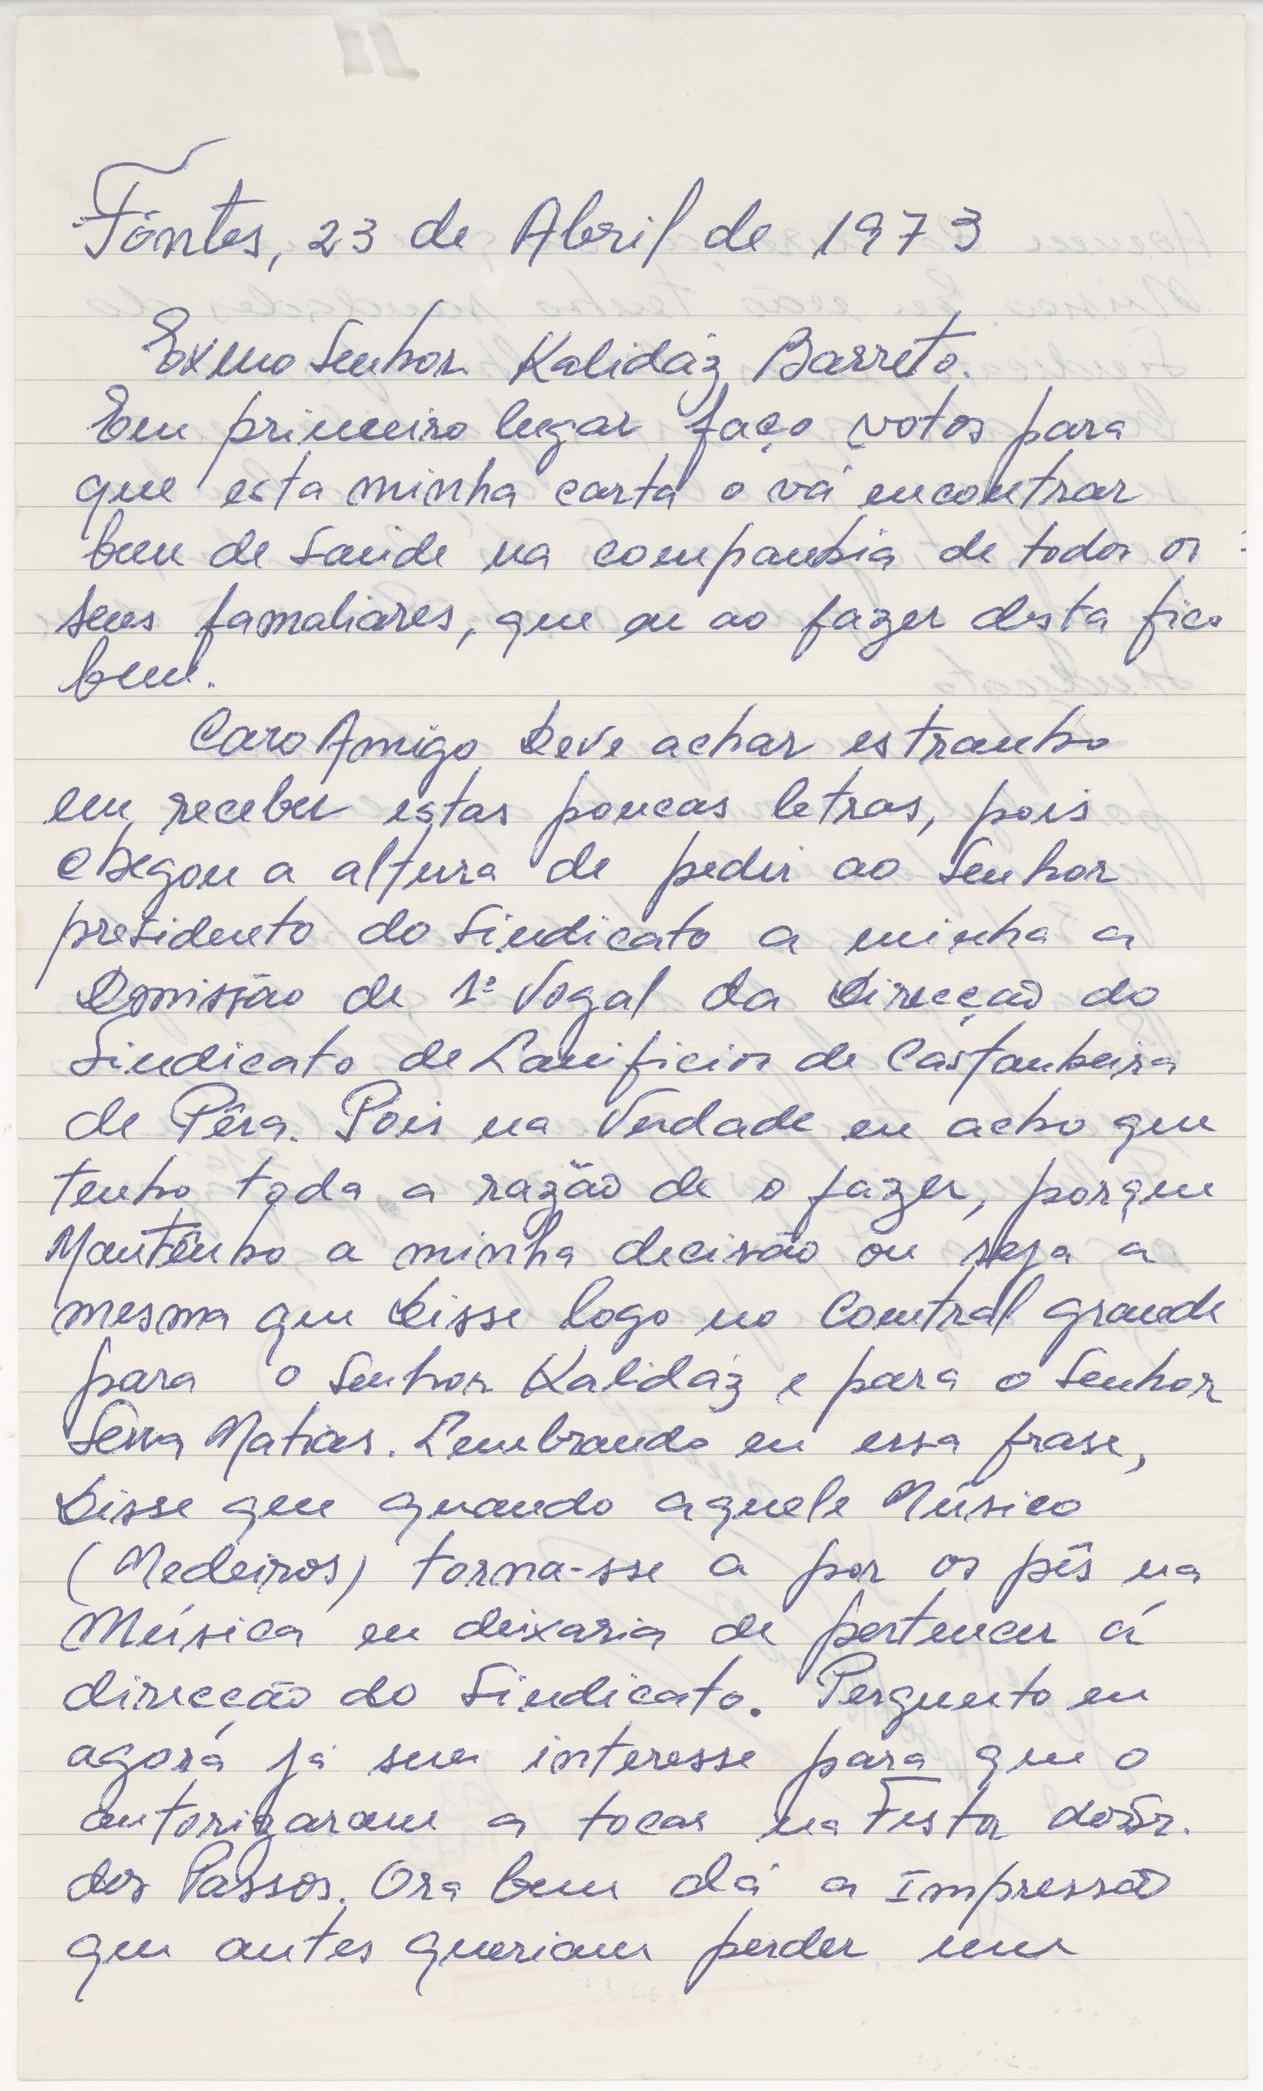 Fóntes, 23 de Abril de 1973
Exmo Senhor Kalidáz Barreto.
Em primeiro lugar faço votos para
que esta minha carta o vá encontrar
bem de Saúde na companhia de todos os
seus famaliares, que eu ao fazer desta fico
bem.
Caro Amigo Deve achar estranho
em receber estas poucas letras, pois
chegou a altura de pedir ao Senhor
presidento do Sindicato a minha a
Domissão de 1º Vogal da Direcção do
Sindicato de Lanificios de Castanheira
de Pêra. Pois na Verdade eu acho que
tenho toda a razão de o fazer, porque
Mantênho a minha decisão ou seja a
mesma que Disse logo no Comtral grande
para o Senhor Kalidáz e para o Senhor
Serra Matias. Lembrando eu essa frase,
Disse que quando aquele Músico
(Medeiros) torna-sse a por os pês na
Música eu deixaria de pertencer á
direcção do Sindicato. Pergunto eu
agora já sem interesse para que o
autorizaram a tocar na Festa do Sr.
dos Passos. Ora bem dá a Impressão
que antes queriam perder um